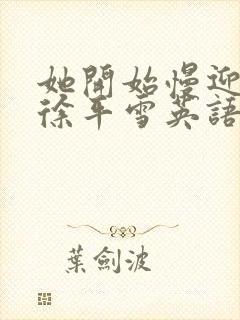 她開始慢迎
徐平雪英語
葉劍波